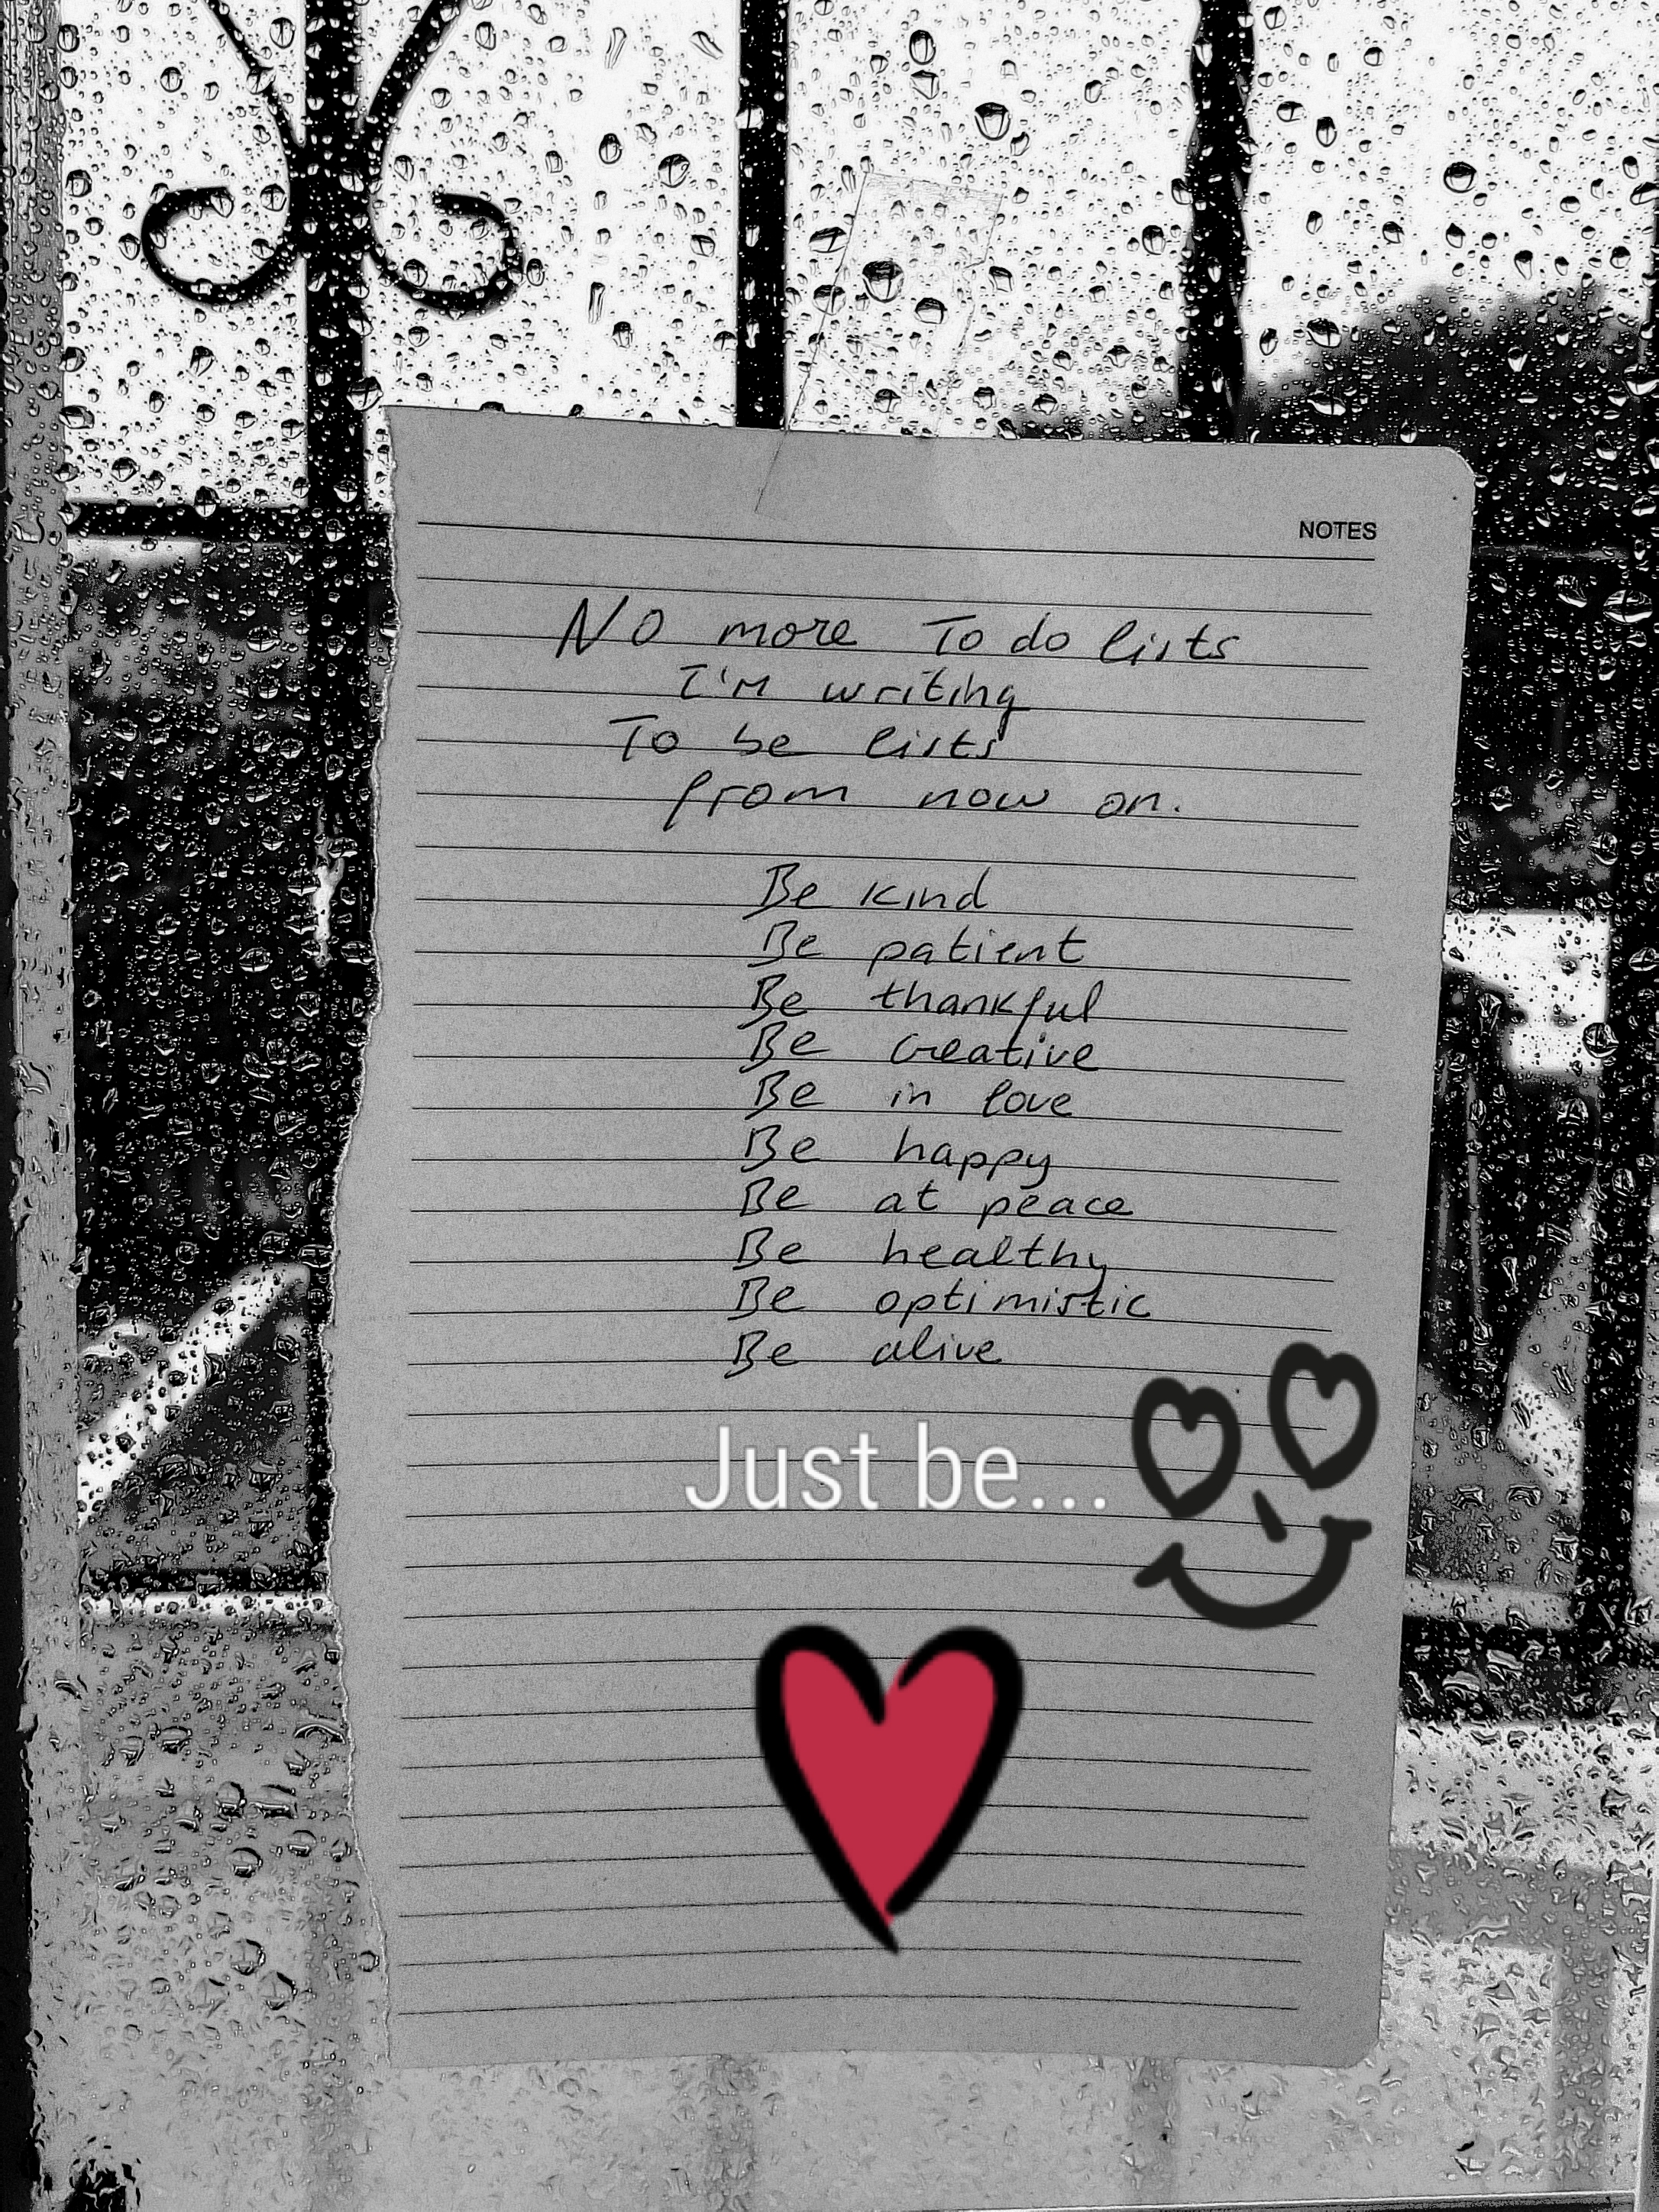 NOTES
NO more To do lists
I'M writing
To be lists
from now on.
Be kind
Be patient
Be thankful
Be creative
Be in love
Be happy
Be at peace
Be healthy
Be optimistic
Be alive
Just be...